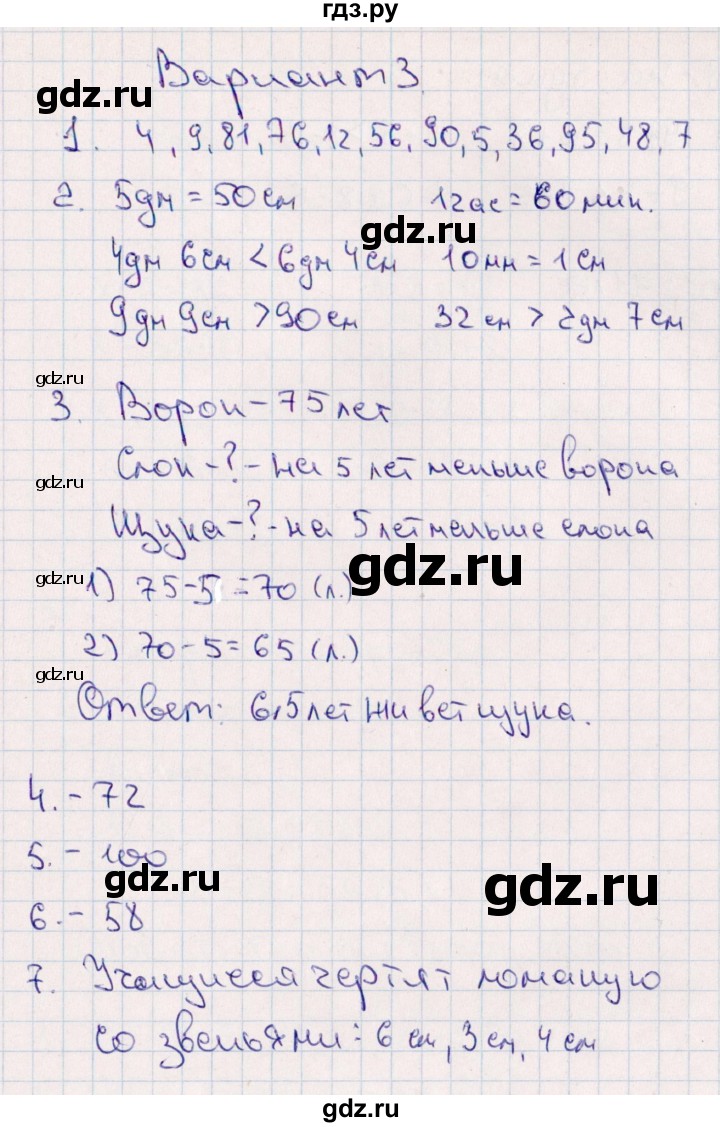 гдз.ру
Вариант 3.
1. 4, 9, 81, 76, 12, 56, 90, 5, 36, 95, 48, 7
2. 5дм = 50см 1час = 60мин.
4дм 6см < 6дм 4см 10мм = 1см
9дм 9см > 90см 32см > 2дм 7см
3. Ворон - 75 лет
Слон - ? - на 5 лет меньше ворона
Щука - ? - на 5 лет меньше слона
1) 75-5=70 (л.)
2) 70-5=65 (л.)
Ответ: 65 лет живет щука.
4. - 72
5. - 100
6. - 58
7. Учащиеся чертят ломаную
со звеньями: 6 см, 3 см, 4 см
gdz.ru
gdz.ru
gdz.ru
gdz.ru
gdz.ru
gdz.ru
gdz.ru
gdz.ru
gdz.ru
gdz.ru